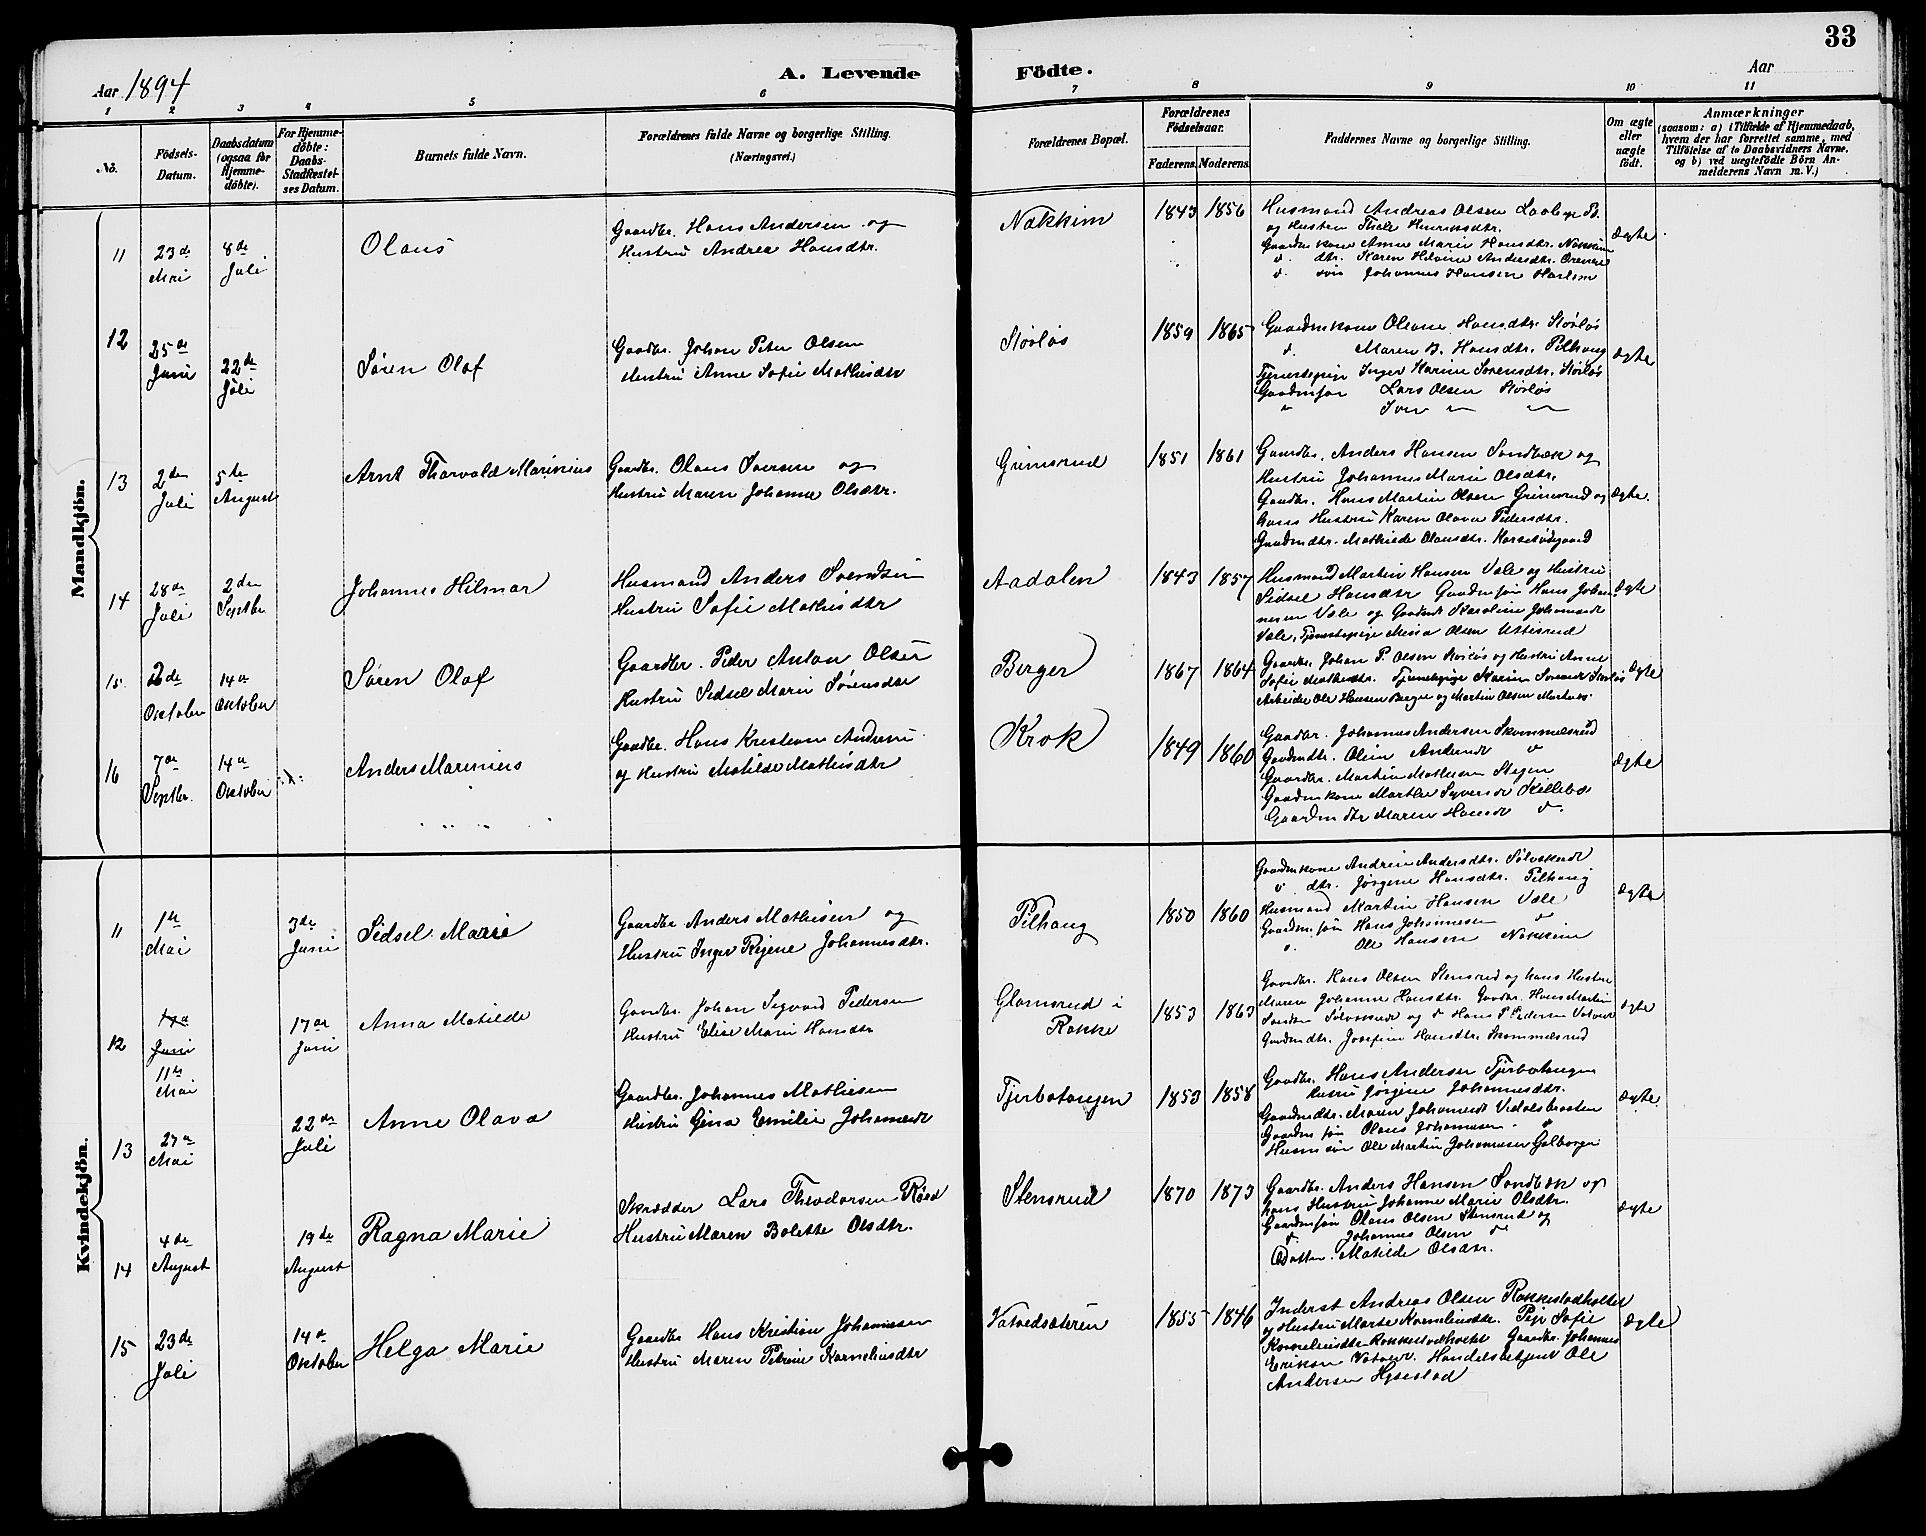 33
Aar 1894
A. Levende Födte.
Aar
1 2 3 4 5 6 7 8 9 10 11
No.
Födsels-Datum.
Daabsdatum (ogsaa for Hjemme-döbte).
For Hjemme-döbte: Daabs-Stadfæstel-ses Datum.
Barnets fulde Navn.
Forældrenes fulde Navne og borgerlige Stilling. (Næringsvei.)
Forældrenes Bopæl.
Forældrenes Födselsaar.
Faderens. Moderens.
Faddernes Navne og borgerlige Stilling.
Om ægte eller uægte födt.
Anmærkninger
(saasom: a) i Tilfælde af Hjemmedaab, hvem der har forrettet samme, med Tilföielse af to Daabsvidners Navne, og b) ved uegtefödte Börn An-melderens Navn m. V.)
Mandkjön.
11 23de Mai 8de Juli Olaus
Gaardbr. Hans Andersen og
Hustru Andrea Hansdtr.
Nakkim 1843 1856
Husmand Andreas Olsen
og Hustru Thale Henriksdtr.
Gaardm.kone Anne Marie Hansdtr. Nakkim
d. dtr. Karen Helvine Andersdtr.
d. søn Johannes Hansen Harlem
Ægte
12 25de Juni 22de Juli Søren Olaf
Gaardbr. Johan Peter Olsen
Hustru Anne Sofie Mathisdtr
Storløs 1859 1865
Gaardmkone Oleane Hansdtr. Storløs
d. Maren B. Hansdtr. Pilhaug
Tjenestepige Inger Karine Sørensdtr. Storløs
Gaardmsøn Lars Olsen Storløs
" Iver " "
Ægte
13 2den Juli 5te August Arnt Thorvald Marinius
Gaardbr. Olaus Iversen og
Hustru Maren Johanne Olsdtr.
Grimsrud 1851 1861
Gaardbr. Anders Hansen Sandbæk og
Hustru Johannes Marie Olsdtr.
Gaardbr. Hans Martin Olsen Grimsrud og
hans Hustru Karen Olava Pedersdtr.
Gaardmdtr. Mathilde Olausdtr.
Ægte.
14 28de Juli 2den Septbr Johannes Hilmar
Husmand Anders Svendsen
Hustru Sofie Mathisdtr
Aadalen 1843 1857
Husmand Martin Hansen Vale og Hustru
Sidsel Hansdtr Gaardmsøn Hans Johan-
nesen Vale og Gaardmdt Karoline Johannesdt
Vale, Tjenestepige Mina Olsen Uttisrud
Ægte
15 2de Oktober 14de Oktober Søren Olaf
Gaardbr. Peder Anton Olsen
Hustru Sidsel Marie Sørensdtr
Berger 1867 1864
Gaardbr. Johan P. Olsen Storløs og Hustru Anne
Sofie Mathisdtr. Tjenestepige Karine Sørensdt Storløs
Arbeider Ole Hansen Berger og Martin Olsen
Ægte
16 7de Septbr. 14de Oktober Anders Marinius
Gaardbr. Hans Kristian Andersen
og Hustru Matilde Mathisdtr
Krok 1849 1860
Gaardbr. Johannes Andersen Skammelsrud
Gaardmdtr. Oline Andersdt d
Gaardbr. Martin Mathisen Stegen
Gaardmkone Marthe Syversdt Killebæ
Gaardmdtr Maren Hansdt d.
Ægte
Kvindekjön.
11 1ste Mai 3de Juni Sidsel Marie
Gaardbr Anders Mathisen og
Hustru Inger Regine Johannesdtr.
Pilhaug 1850 1860
Gaardmkone Andrine Andersdtr. Sølvskudt
d dtr. Jørgine Hansdtr. Pilhaug
Husmand Martin Hansen Vale
Gaardm.søn Hans Johannesen d
d. Ole Hansen Nakkim
Ægte
12 17de Juni 11te Mai 17de Juni Anna Matilde
Gaardbr. Johan Sigvard Pedersen
Hustru Elise Marie Hansdtr
Glamsrud i Rakke 1853 1863
Gaardbr. Hans Olsen Stensrud og hans Hustru
Maren Johanne Hansdtr. Gaardbr. Hans Martin
Sølvskudt og d Hans P. Pedersen Vatvedt
Gaardmdtr. Josefine Hansdtr. Skammelsrud
Ægte
13 27de Mai 22de Juli Anne Olava
Gaardbr. Johannes Mathisen
Hustru Gina Emilie Johannesdt
Tjerbotangen 1853 1858
Gaardbr. Hans Andersen Tjerbotangen
Hustru Jørgine Johannesdtr.
Gaardmdtr. Maren Johannesdt Vedalsbraaten
Gaardmsøn Olaus Johannesen d
Husmsøn Ole Martin Johannesen
Ægte.
14 4de August 19de August Ragna Marie
Skrædder Lars Theodorsen Røed
Hustru Maren Bolette Olsdtr.
Stensrud 1870 1873
Gaardbr. Anders Hansen Sandbæk og
hans Hustru Johanne Marie Olsdtr.
Gaardmsøn Olaus Olsen Stensrud og
d. Johannes Olsen d
Datter. Matilde Olsdtr.
Ægte
15 23de Juli 14de Oktober Helga Marie
Gaardbr Hans Kristian Johannesen
Hustru Maren Petrine Korneliusdtr
Vatvedsæteren 1855 1846
Inderst Andreas Olsen Rakkestadholtet
og Hustru Marte Korneliusdtr. Pige Sofie
Korneliusdtr Rakkestadholtet Gaardbr. Johannes
Eriksen Vatvedt. Handelsbetjent Ole
Andersen Hysestad
Ægte